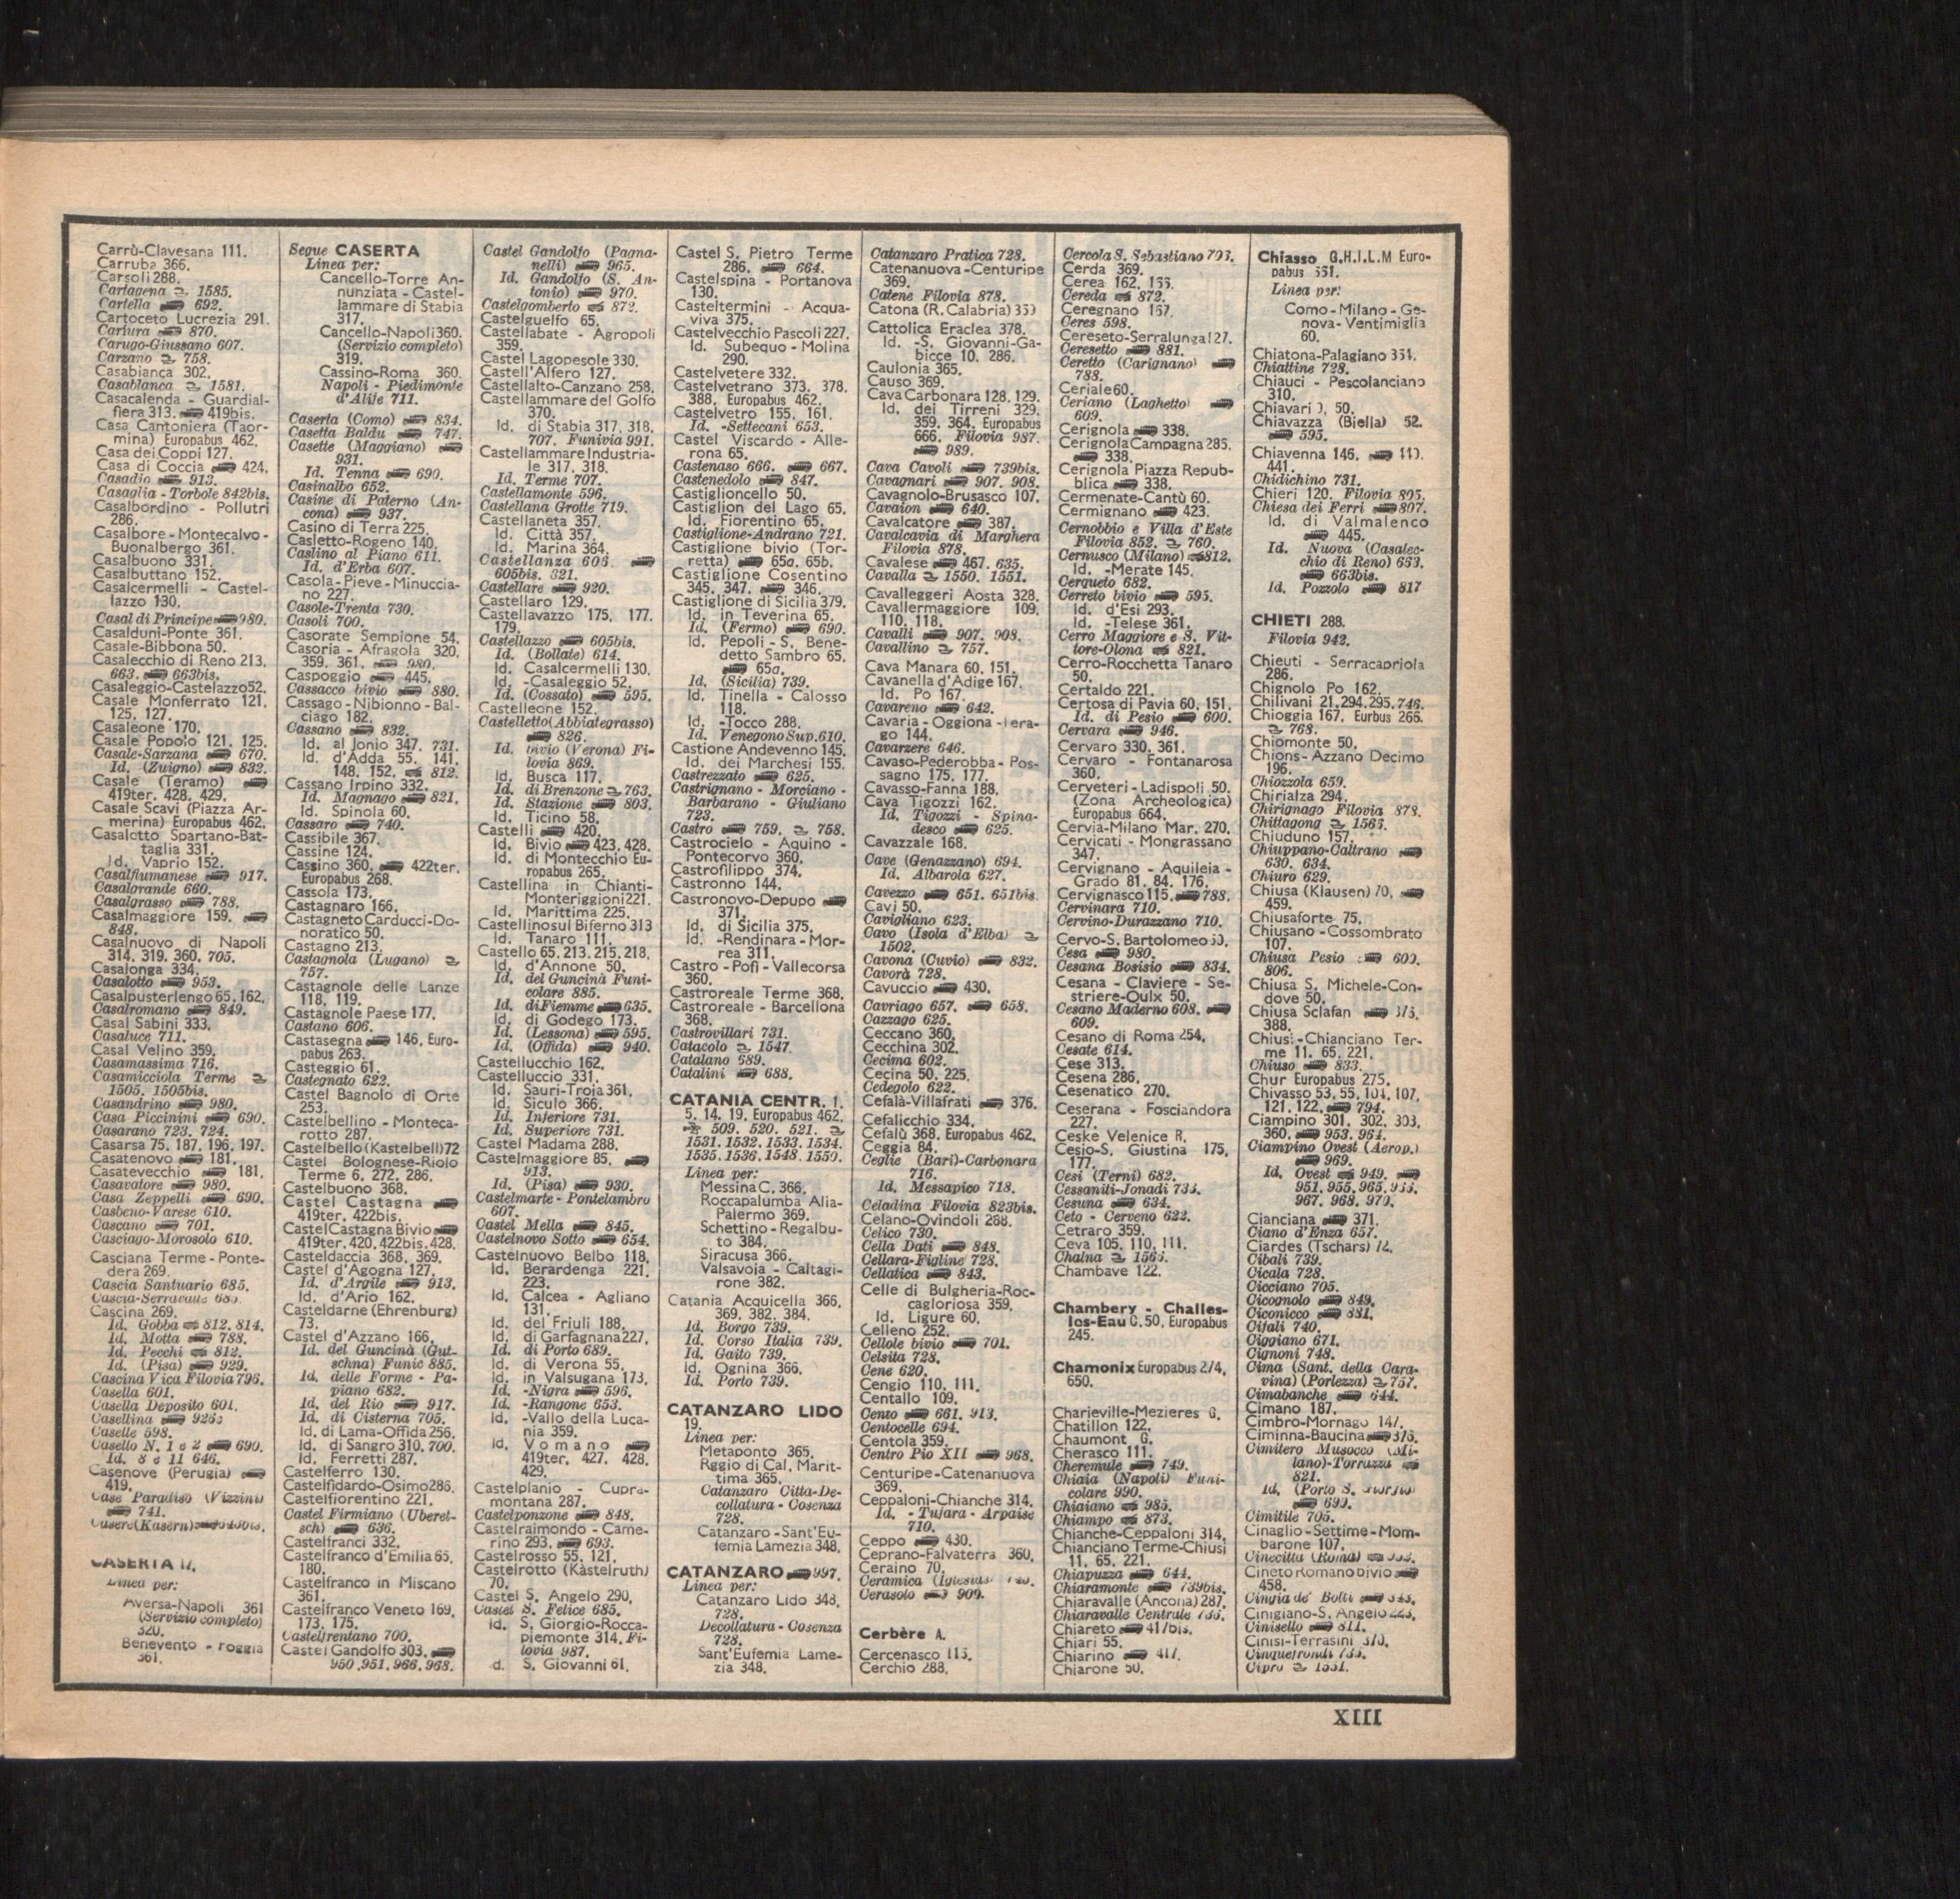 Carrù-Clavesana 111.
Carruba 366.
Carsoli 288.
Cartagena 1585.
Cartella 692.
Cartoceto Lucrezia 291.
Cartura 870.
Carugo-Giussano 607.
Carzano 758.
Casabianca 302.
Casablanca 1581.
Casacalenda - Guardial-
fiera 313. 419bis.
Casa Cantoniera (Taor-
mina) Europabus 462.
Casa dei Coppi 127.
Casa di Coccia 424.
Casadio 913.
Casaglia - Torbole 842bis.
Casalbordino - Pollutri
286.
Casalbore - Montecalvo -
Buonalbergo 361.
Casalbuono 331.
Casalbuttano 152.
Casalcermelli - Castel-
lazzo 130.
Casal di Principe 980.
Casalduni-Ponte 361.
Casale-Bibbona 50.
Casalecchio di Reno 213.
663. 663bis.
Casaleggio-Castelazzo 52.
Casale Monferrato 121.
125. 127.
Casaleone 170.
Casale Popolo 121. 125.
Casale-Sarzana 670.
Id. (Zuigno) 832.
Casale (Teramo)
419ter. 428. 429.
Casale Scavi (Piazza Ar-
merina) Europabus 462.
Casaletto Spartano-Bat-
taglia 331.
Id. Vaprio 152.
Casalfiumanese 917.
Casalgrande 660.
Casalgrasso 788.
Casalmaggiore 159.
848.
Casalnuovo di Napoli
314. 319. 360. 705.
Casalonga 334.
Casalotto 953.
Casalpusterlengo 65. 162.
Casalromano 849.
Casal Sabini 333.
Casaluce 711.
Casal Velino 359.
Casamassima 716.
Casamicciola Terme
1505. 1505bis.
Casandrino 980.
Casa Piccinini 690.
Casarano 723. 724.
Casarsa 75. 187. 196. 197.
Casatenovo 181.
Casatevecchio 181.
Casavatore 980.
Casa Zeppelli 690.
Casbeno-Varese 610.
Cascano 701.
Casciago-Morosolo 610.
Casciana Terme - Ponte-
dera 269.
Cascia Santuario 685.
Cascia-Serravalle 685.
Cascina 269.
Id. Gobba 812. 814.
Id. Motta 788.
Id. Pecchi 812.
Id. (Pisa) 929.
Cascina Vica Filovia 796.
Casella 601.
Casella Deposito 601.
Casellina
Caselle 598.
Casello N. 1 e 2 690.
Id. 8 e 11 646.
Casenove (Perugia)
419.
Case Paradiso (Vizzini)
741.
Casere (Kasern)
CASERTA
Linea per:
Aversa-Napoli 361
(Servizio completo)
320.
Benevento - Foggia
361.
Segue CASERTA
Linea per:
Cancello-Torre An-
nunziata - Castel-
lammare di Stabia
317.
Cancello-Napoli 360.
(Servizio completo)
319.
Cassino-Roma 360.
Napoli - Piedimonte
d'Alife 711.
Caserta (Como) 834.
Casetta Baldu 747.
Casette (Maggiano)
931.
Id. Tenna 690.
Casinalbo 652.
Casine di Paterno (An-
cona) 937.
Casino di Terra 225.
Casletto-Rogeno 140.
Caslino al Piano 611.
Id. d'Erba 607.
Casola-Pieve-Minuccia-
no 227.
Casole-Trenta 730.
Casoli 700.
Casorate Sempione 54.
Casoria - Afragola 320.
359. 361. 980.
Caspoggio 445.
Cassacco bivio 880.
Cassago - Nibionno - Bal-
ciago 182.
Cassano 832.
Id. al Jonio 347. 731.
Id. d'Adda 55. 141.
148. 152. 812.
Cassano Irpino 332.
Id. Magnago 821.
Id. Spinola 60.
Cassaro 740.
Cassibile 367.
Cassine 124.
Cassino 360. 422ter.
Europabus 268.
Cassola 173.
Castagnaro 166.
Castagneto Carducci-Do-
noratico 50.
Castagno 213.
Castagnola (Lugano)
757.
Castagnole delle Lanze
118. 119.
Castagnole Paese 177.
Castano 606.
Castasegna 146. Euro-
pabus 263.
Casteggio 61.
Castegnato 622.
Castel Bagnolo di Orte
253.
Castelbellino - Monteca-
rotto 287.
Castelbello (Kastelbell) 72
Castel Bolognese-Riolo
Terme 6. 272. 286.
Castelbuono 368.
Castel Castagna
419ter. 422bis.
Castel Castagna Bivio
419ter. 420. 422bis. 428.
Casteldaccia 368. 369.
Castel d'Agogna 127.
Id. d'Argile 913.
Id. d'Ario 162.
Casteldarne (Ehrenburg)
73.
Castel d'Azzano 166.
Id. del Guncinà (Gut-
schna) Funic 885.
Id. delle Forme - Pa-
piano 682.
Id. del Rio 917.
Id. di Cisterna 705.
Id. di Lama-Offida 256.
Id. di Sangro 310. 700.
Id. Ferretti 287.
Castelferro 130.
Castelfidardo-Osimo 286.
Castelfiorentino 221.
Castel Firmiano (Uberet-
sch) 636.
Castelfranci 332.
Castelfranco d'Emilia 65.
180.
Castelfranco in Miscano
361.
Castelfranco Veneto 169.
173. 175.
Castelfrentano 700.
Castel Gandolfo 303.
950. 951. 966. 968.
Castel Gandolfo (Pagna-
nelli) 965.
Id. Gandolfo (S. An-
tonio) 970.
Castelgomberto 872.
Castelguelfo 65.
Castellabate - Agropoli
359.
Castel Lagopesole 330.
Castell'Alfero 127.
Castellalto-Canzano 258.
Castellammare del Golfo
370.
Id. di Stabia 317. 318.
707. Funivia 991.
Castellammare Industria-
le 317. 318.
Id. Terme 707.
Castellamonte 596.
Castellana Grotte 719.
Castellaneta 357.
Id. Città 357.
Id. Marina 364.
Castellanza 606.
605bis. 821.
Castellare 920.
Castellaro 129.
Castellavazzo 175. 177.
179.
Castellazzo 605bis.
Id. (Bollate) 614.
Id. Casalcermelli 130.
Id. -Casaleggio 52.
Id. (Cossato) 595.
Castelleone 152.
Castelletto (Abbiategrasso)
826.
Id. bivio (Verona) Fi-
lovia 869.
Id. Busca 117.
Id. di Brenzone 763.
Id. Stazione 803.
Id. Ticino 58.
Castelli 420.
Id. Bivio 423. 428.
Id. di Montecchio Eu-
ropabus 265.
Castellina in Chianti-
Monteriggioni 221.
Id. Marittima 225.
Castellino sul Biferno 313
Id. Tanaro 111.
Castello 65. 213. 215. 218.
Id. d'Annone 50.
Id. del Guncinà Funi-
colare 885.
Id. di Fiemme 635.
Id. di Godego 173.
Id. (Lessona) 595.
Id. (Offida) 940.
Castellucchio 162.
Castelluccio 331.
Id. Sauri-Troia 361.
Id. Siculo 366.
Id. Inferiore 731.
Id. Superiore 731.
Castel Madama 288.
Castelmaggiore 85.
913.
Id. (Pisa) 930.
Castelmarte - Pontelambro
607.
Castel Mella 845.
Castelnovo Sotto 654.
Castelnuovo Belbo 118.
Id. Berardenga 221.
223.
Id. Calcea - Agliano
131.
Id. del Friuli 188.
Id. di Garfagnana 227.
Id. di Porto 689.
Id. di Verona 55.
Id. in Valsugana 173.
Id. -Nigra 596.
Id. -Rangone 653.
Id. -Vallo della Luca-
nia 359.
Id. Vomano
419ter. 427. 428.
429.
Castelplanio - Cupra-
montana 287.
Castelponzone 848.
Castelraimondo - Came-
rino 293. 693.
Castelrosso 55. 121.
Castelrotto (Kästelruth)
70.
Castel S. Angelo 290.
Castel S. Felice 685.
Id. S. Giorgio-Rocca-
piemonte 314. Fi-
lovia 987.
d. S. Giovanni 61.
Castel S. Pietro Terme
286. 664.
Castelspina - Portanova
130.
Casteltermini - Acqua-
viva 375.
Castelvecchio Pascoli 227.
Id. Subequo - Molina
290.
Castelvetere 332.
Castelvetrano 373. 378.
388. Europabus 462.
Castelvetro 155. 161.
Id. -Settecani 653.
Castel Viscardo - Alle-
rona 65.
Castenaso 666. 667.
Castenedolo 847.
Castiglioncello 50.
Castiglion del Lago 65.
Id. Fiorentino 65.
Castiglione-Andrano 721.
Castiglione bivio (Tor-
retta) 65a. 65b.
Castiglione Cosentino
345. 347. 346.
Castiglione di Sicilia 379.
Id. in Teverina 65.
Id. (Fermo) 690.
Id. Pepoli - S. Bene-
detto Sambro 65.
65a.
Id. (Sicilia) 739.
Id. Tinella - Calosso
118.
Id. -Tocco 288.
Id. Venegono Sup. 610.
Castione Andevenno 145.
Id. dei Marchesi 155.
Castrezzato 625.
Castrignano - Morciano -
Barbarano - Giuliano
723.
Castro 759. 758.
Castrocielo - Aquino -
Pontecorvo 360.
Castrofilippo 374.
Castronno 144.
Castronovo-Depupo
371.
Id. di Sicilia 375.
Id. -Rendinara - Mor-
rea 311.
Castro - Pofi - Vallecorsa
360.
Castroreale Terme 368.
Castroreale - Barcellona
368.
Castrovillari 731.
Catacolo 1547.
Catalano 689.
Catalini 688.
CATANIA CENTR. 1.
5. 14. 19. Europabus 462.
509. 520. 521.
1531. 1532. 1533. 1534.
1535. 1536. 1548. 1550.
Linea per:
Messina C. 366.
Roccapalumba Alia-
Palermo 369.
Schettino - Regalbu-
to 384.
Siracusa 366.
Valsavoia - Caltagi-
rone 382.
Catania Acquicella 366.
369. 382. 384.
Id. Borgo 739.
Id. Corso Italia 739.
Id. Gaito 739.
Id. Ognina 366.
Id. Porto 739.
CATANZARO LIDO
19.
Linea per:
Metaponto 365.
Rggio di Cal. Marit-
tima 365.
Catanzaro Citta-De-
collatura - Cosenza
728.
Catanzaro - Sant'Eu-
femia Lamezia 348.
CATANZARO 997.
Linea per:
Catanzaro Lido 348.
728.
Decollatura - Cosenza
728.
Sant'Eufemia Lame-
zia 348.
Catanzaro Pratica 728.
Catenanuova-Centuripe
369.
Catene Filovia 878.
Catona (R. Calabria)
Cattolica Eraclea 378.
Id. -S. Giovanni-Ga-
bicce 10. 286.
Caulonia 365.
Causo 369.
Cava Carbonara 128. 129.
Id. dei Tirreni 329.
359. 364. Europabus
666. Filovia 987.
989.
Cava Cavoli 739bis.
Cavagnari 907. 908.
Cavagnolo-Brusasco 107.
Cavaion 640.
Cavalcatore 387.
Cavalcavia di Marghera
Filovia 878.
Cavalese 467. 635.
Cavalla 1550. 1551.
Cavalleggeri Aosta 328.
Cavallermaggiore 109.
110. 118.
Cavalli 907. 908.
Cavallino 757.
Cava Manara 60. 151.
Cavanella d'Adige 167.
Id. Po 167.
Cavareno 642.
Cavaria - Oggiona - Jera-
go 144.
Cavarzere 646.
Cavaso-Pederobba - Pos-
sagno 175. 177.
Cavasso-Fanna 188.
Cava Tigozzi 162.
Id. Tigozzi - Spina-
desco 625.
Cavazzale 168.
Cave (Genazzano) 694.
Id. Albarola 627.
Cavezzo 651. 651bis.
Cavi 50.
Cavigliano 623.
Cavo (Isola d'Elba)
1502.
Cavona (Cuvio) 832.
Cavorà 728.
Cavuccio 430.
Cavriago 657. 658.
Cazzago 625.
Ceccano 360.
Cecchina 302.
Cecima 602.
Cecina 50. 225.
Cedegolo 622.
Cefalà-Villafrati 376.
Cefalicchio 334.
Cefalù 368. Europabus 462.
Ceggia 84.
Ceglie (Bari)-Carbonara
716.
Id. Messapico 718.
Celadina Filovia 823bis.
Celano-Ovindoli 288.
Celico 730.
Cella Dati 848.
Cellara-Figline 728.
Cellatica 843.
Celle di Bulgheria-Roc-
cagloriosa 359.
Id. Ligure 60.
Celleno 252.
Cellole bivio 701.
Celsita 728.
Cene 620.
Cengio 110. 111.
Centallo 109.
Cento 661. 913.
Centocelle 694.
Centola 359.
Centro Pio XII 968.
Centuripe-Catenanuova
369.
Ceppaloni-Chianche 314.
Id. - Tufara - Arpaise
710.
Ceppo 430.
Ceprano-Falvaterra 360.
Ceraino 70.
Ceramica (Iglesias)
Cerasolo 909.
Cerbère A.
Cercenasco 115.
Cerchio 288.
Cercola S. Sebastiano 703.
Cerda 369.
Cerea 162. 166.
Cereda 872.
Ceregnano 167.
Ceres 598.
Cereseto-Serralunga 127.
Ceresetto 881.
Ceretto (Carignano)
788.
Ceriale 60.
Ceriano (Laghetto)
609.
Cerignola 338.
Cerignola Campagna 286.
338.
Cerignola Piazza Repub-
blica 338.
Cermenate-Cantù 60.
Cermignano 423.
Cernobbio e Villa d'Este
Filovia 852. 760.
Cernusco (Milano) 812.
Id. -Merate 145.
Cerqueto 682.
Cerreto bivio 595.
Id. d'Esi 293.
Id. -Telese 361.
Cerro Maggiore e S. Vit-
tore-Olona 821.
Cerro-Rocchetta Tanaro
50.
Certaldo 221.
Certosa di Pavia 60. 151.
Id. di Pesio 600.
Cervara 946.
Cervaro 330. 361.
Cervaro - Fontanarosa
360.
Cerveteri - Ladispoli 50.
(Zona Archeologica)
Europabus 664.
Cervia-Milano Mar. 270.
Cervicati - Mongrassano
347.
Cervignano - Aquileia -
Grado 81. 84. 176.
Cervignasco 115. 788.
Cervinara 710.
Cervino-Durazzano 710.
Cervo-S. Bartolomeo
Cesa 980.
Cesana Bosisio 834.
Cesana - Claviere - Se-
striere-Oulx 50.
Cesano Maderno 608.
609.
Cesano di Roma 254.
Cesate 614.
Cese 313.
Cesena 286.
Cesenatico 270.
Ceserana - Fosciandora
227.
Ceske Velenice R.
Cesio-S. Giustina 175.
177.
Cesi (Terni) 682.
Cessaniti-Jonadi 733.
Cesuna 634.
Ceto - Cerveno 622.
Cetraro 359.
Ceva 105. 110. 111.
Chalna 1566.
Chambave 122.
Chambery - Challes-
los-Eau G. 50. Europabus
245.
Chamonix Europabus 274.
650.
Charleville-Mezieres G.
Chatillon 122.
Chaumont G.
Cherasco 111.
Cheremule 749.
Chiaia (Napoli) Funi-
colare 990.
Chiaiano 985.
Chiampo 873.
Chianche-Ceppaloni 314.
Chianciano Terme-Chiusi
11. 65. 221.
Chiapuzza 644.
Chiaramonte 739bis.
Chiaravalle (Ancona) 287.
Chiaravalle Centrale
Chiareto 417bis.
Chiari 55.
Chiarino 417.
Chiarone 50.
Chiasso G.H.I.L.M Euro-
pabus 551.
Linea per:
Como - Milano - Ge-
nova - Ventimiglia
60.
Chiatona-Palagiano 354.
Chiattine 728.
Chiauci - Pescolanciano
310.
Chiavari 9. 50.
Chiavazza (Biella) 52.
595.
Chiavenna 146.
441.
Chidichino 731.
Chieri 120. Filovia 805.
Chiesa dei Ferri 807.
Id. di Valmalenco
445.
Id. Nuova (Casalec-
chio di Reno) 663.
663bis.
Id. Pozzolo 817
CHIETI 288.
Filovia 942.
Chieuti - Serracapriola
286.
Chignolo Po 162.
Chilivani 21. 294. 295. 746.
Chioggia 167. Eurbus 266.
768.
Chiomonte 50.
Chions-Azzano Decimo
196.
Chiozzola 659.
Chirialza 294.
Chirignago Filovia 878.
Chittagong 1566.
Chiuduno 157.
Chiuppano-Caltrano
630. 634.
Chiuro 629.
Chiusa (Klausen) 70.
459.
Chiusaforte 75.
Chiusano - Cossombrato
107.
Chiusa Pesio 600.
806.
Chiusa S. Michele-Con-
dove 50.
Chiusa Sclafan 376.
388.
Chiusi-Chianciano Ter-
me 11. 65. 221.
Chiuso 833.
Chur Europabus 275.
Chivasso 53. 55. 104. 107.
121. 122. 794.
Ciampino 301. 302. 303.
360. 953. 964.
Ciampino Ovest (Aerop.)
969.
Id. Ovest 949.
951. 955. 965.
967. 968. 970.
Cianciana 371.
Ciano d'Enza 657.
Ciardes (Tschars) 72.
Cibali 739.
Cicala 728.
Cicciano 705.
Cicognolo 849.
Ciconicco 881.
Cifali 740.
Ciggiano 671.
Cignoni 748.
Cima (Sant. della Cara-
vina) (Porlezza) 757.
Cimabanche 644.
Cimano 187.
Cimbro-Mornago 147.
Ciminna-Baucina 376.
Cimitero Musocco (Mi-
lano)-Torrazza
821.
Id. (Porto S. Giorgio)
693.
Cimitile 705.
Cinaglio-Settime-Mom-
barone 107.
Cinecitta (Roma)
Cineto Romano bivio
458.
Cingia de' Botti
Cinigiano-S. Angelo
Cinisello 811.
Cinisi-Terrasini 370.
Cinquefrondi
Cipro 1551.
XIII